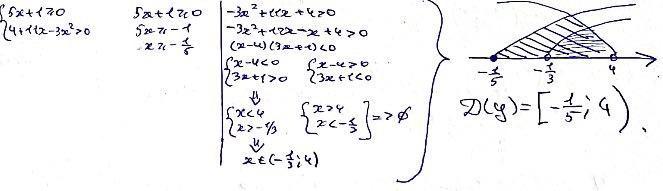 {5x+1≥0
{4+11x-3x²>0
5x+1≥0
5x≥-1
x≥-1/5
-3x²+11x+4>0
-3x²+12x-x+4>0
(x-4)(3x+1)<0
{x-4<0 {x-4>0
{3x+1>0 {3x+1<0
⇓
{x<4 {x>4
{x>-1/3 {x<-1/3 ] => ∅
⇓
x∈(-1/3; 4)
-1/5 -1/3 4
D(y)=[-1/5; 4).